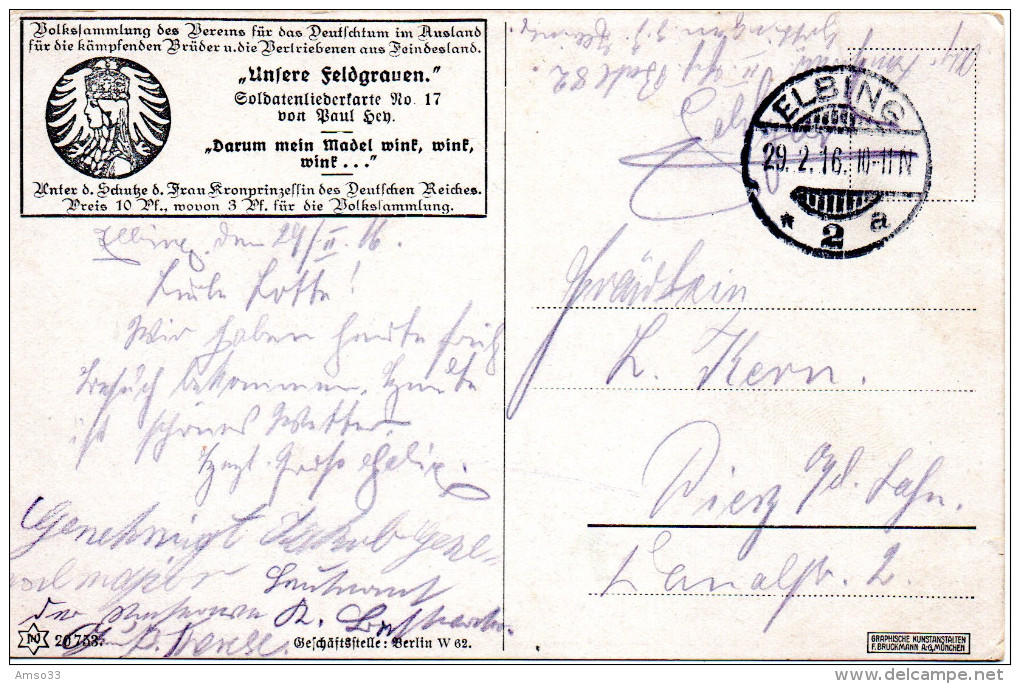 Volkssammlung des Vereins für das Deutschtum im Ausland
für die kämpfenden Brüder u. die Vertriebenen aus Feindesland.
„Unsere Feldgrauen."
Soldatenliederkarte No. 17
von Paul Hey.
„Darum mein Madel wink, wink,
wink . . ."
Unter d. Schutze d. Frau Kronprinzessin des Deutschen Reiches.
Preis 10 Pf., wovon 3 Pf. für die Volkssammlung.
ELBING
29.2.16. 10-11N
* 2 a
Elbing, den 29/II.16.
Liebe Lotte!
Wir haben heute früh
Besuch bekommen. Heute
ist schönes Wetter.
Herzl. Gruß Felix.
Genehmigt
Leutnant
der
Fräulein
L. Kern.
Diez a/d. Lahn.
Kanalstr. 2.
20753.
Geschäftsstelle: Berlin W 62.
GRAPHISCHE KUNSTANSTALTEN
F. BRUCKMANN A.-G. MÜNCHEN
Amso33
delcampe.net